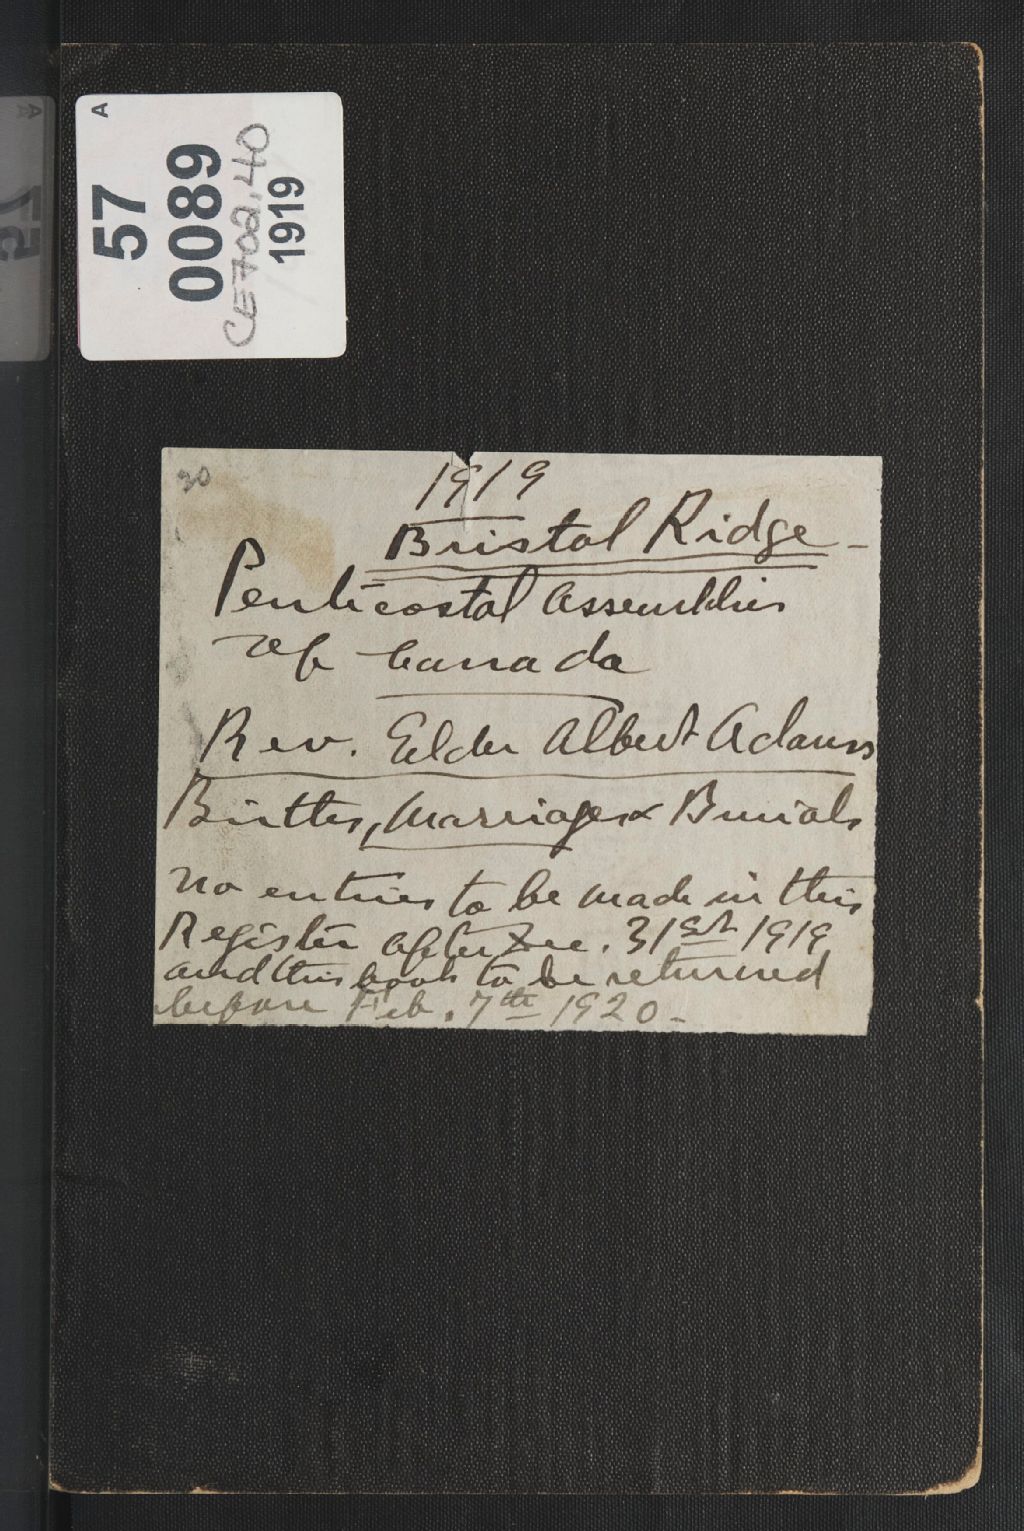 A
57
0089
CE702,40
1919
30
1919
Bristol Ridge -
Penticostal Assemblies
of Canada
Rev. Elder Albert Adams
Births, Marriages & Burials
no entries to be made in this
Register after Dec. 31st 1919
and this book to be returned
before Feb. 7th 1920 -